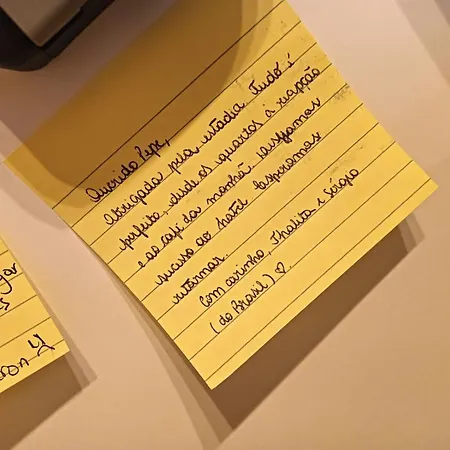 Querido Pepe,
obrigada pela estadia. Tudo é
perfeito, desde os quartos à recepção
e ao café da manhã. Desejamos
sucesso ao hotel e esperamos
retornar.
Com carinho, Thalita e Sergio
(do Brasil) ♡